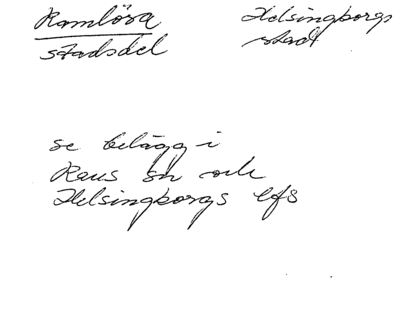 Ramlösa
stadsdel
Helsingborgs
stad
se belägg i
Raus sn och
Helsingborgs lfs